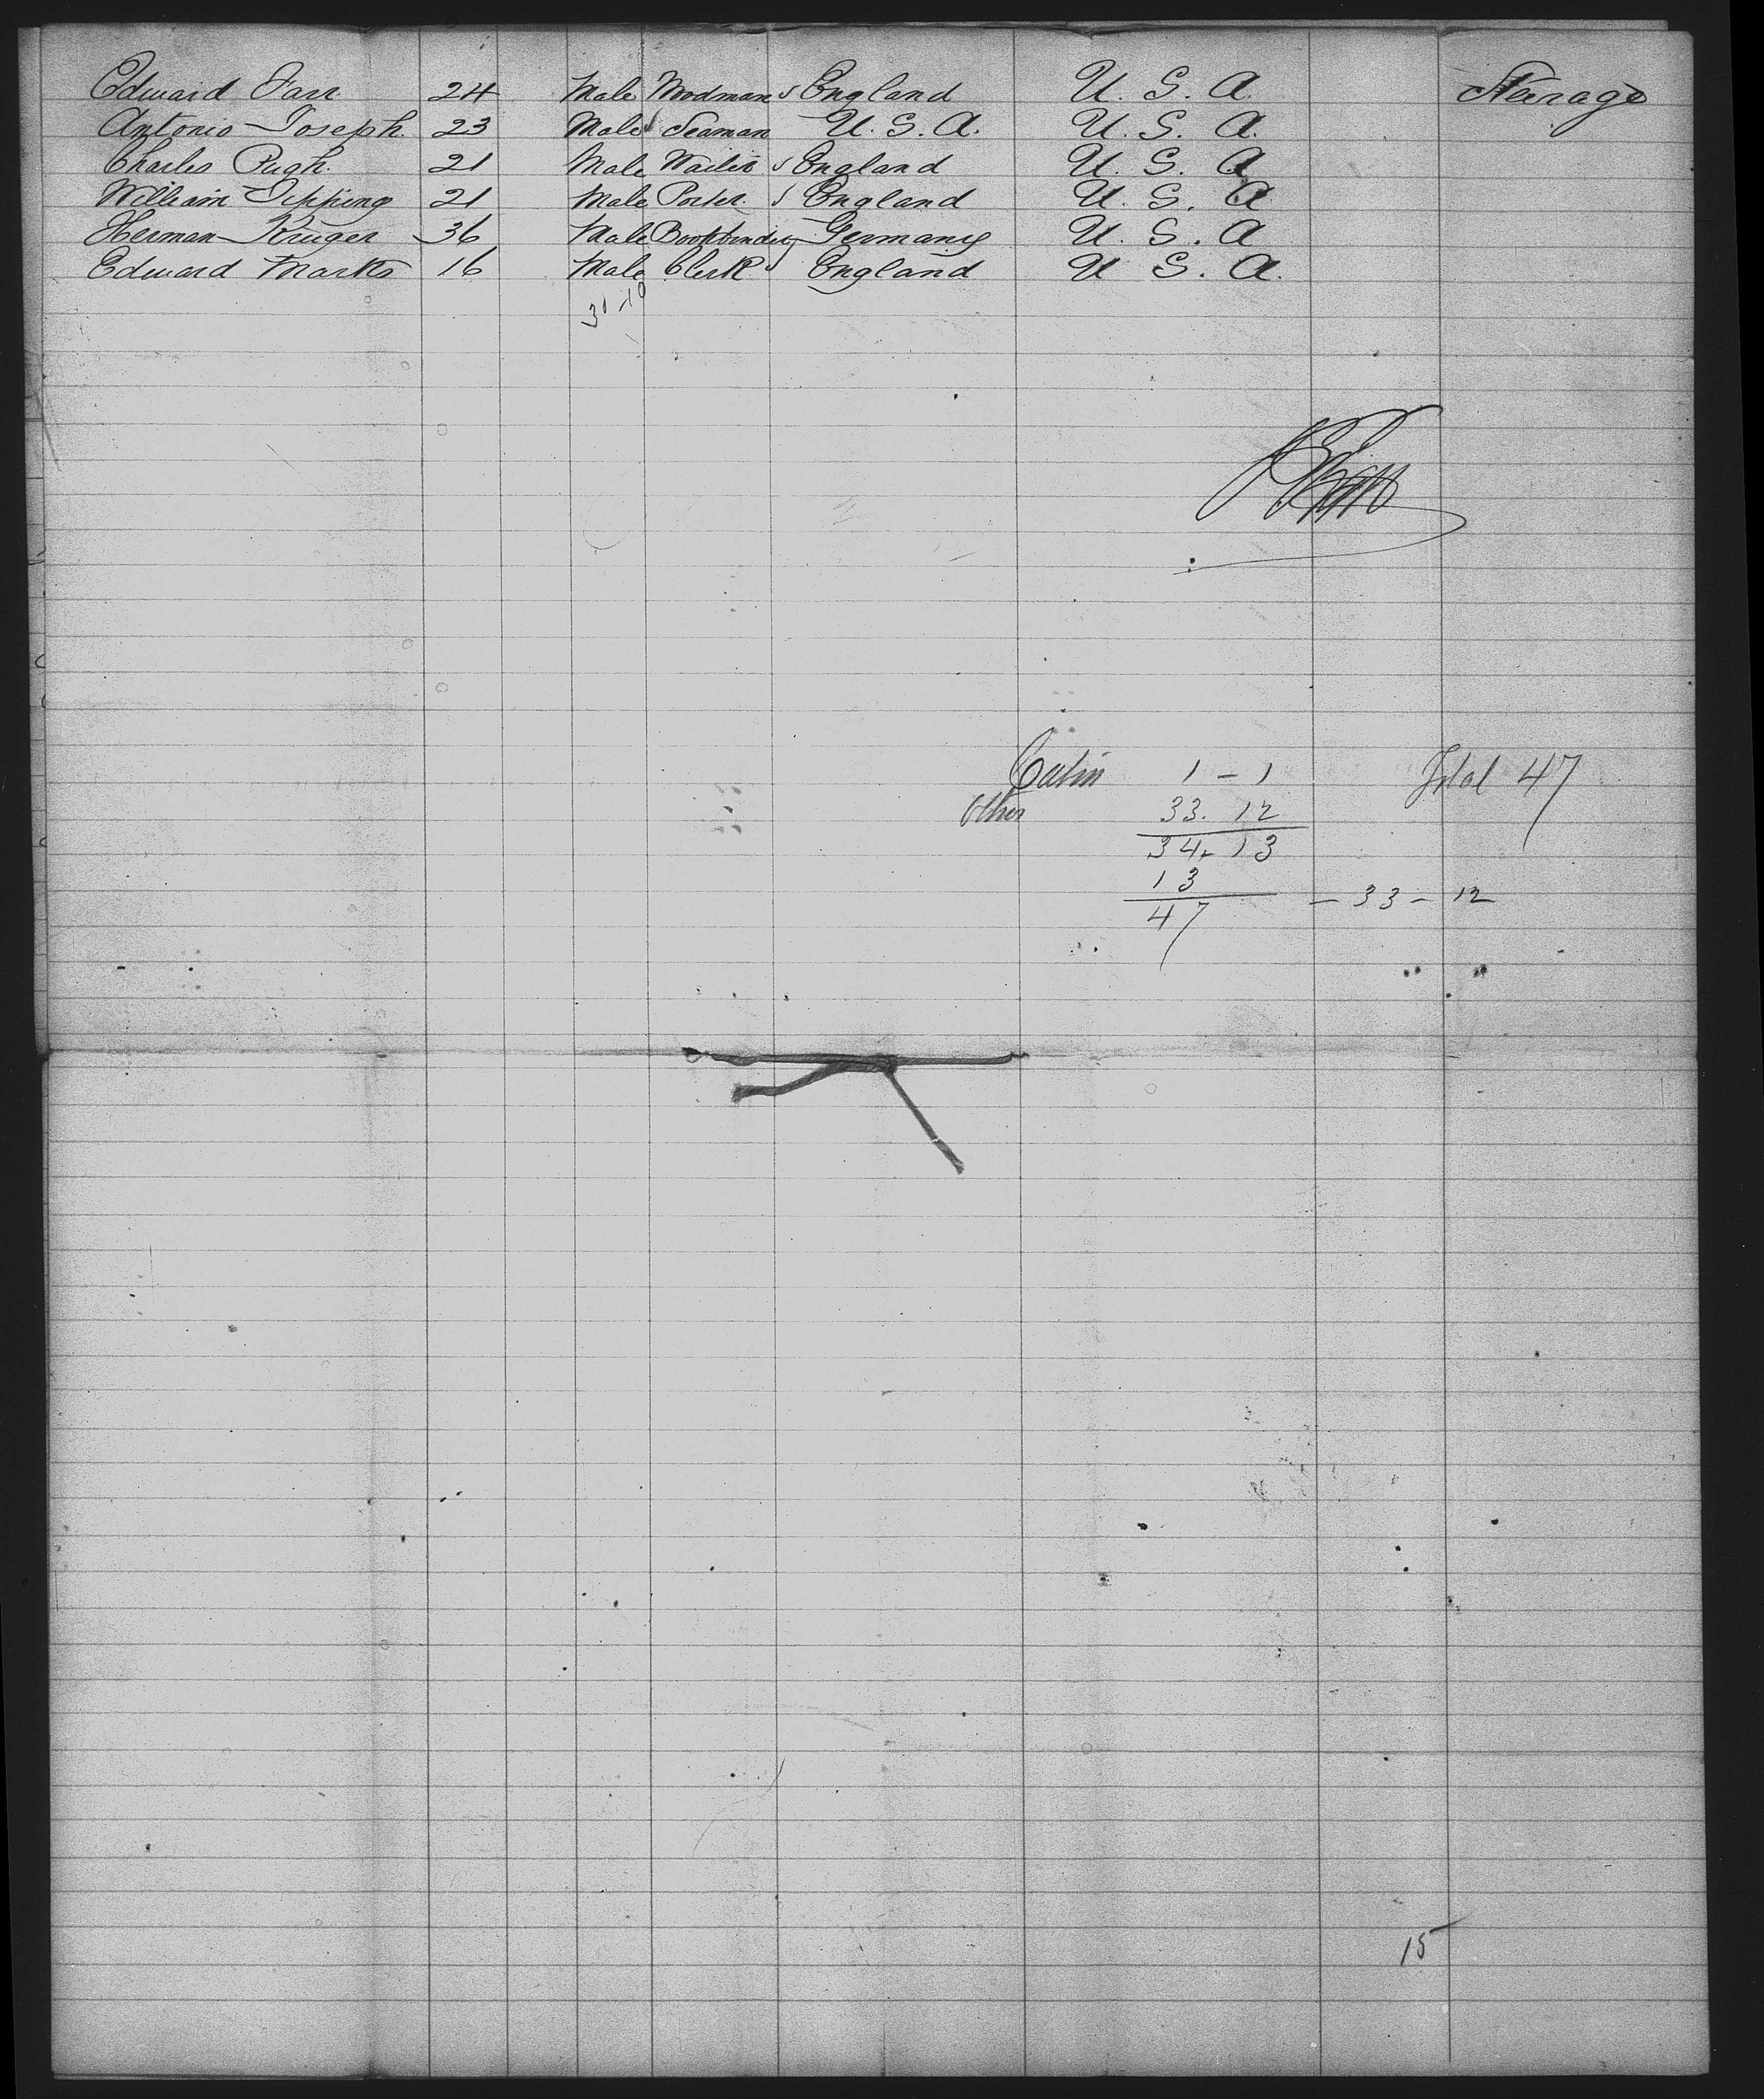 Edward Farr 24 Male Woodman England U. S. A. Steerage
Antonio Joseph. 23 Male Seaman U. S. A. U. S. A.
Charles Pugh. 21 Male Waiter England U. S. A
William Tipping 21 Male Porter. England U. S. A
Herman Kruger 36 Male Bookbinder Germany U. S. A
Edward Marks 16 Male Clerk England U S. A.
31-10
Cabin 1 - 1 Total 47
Other 33. 12
34. 13
13
47 - 33 - 12
15